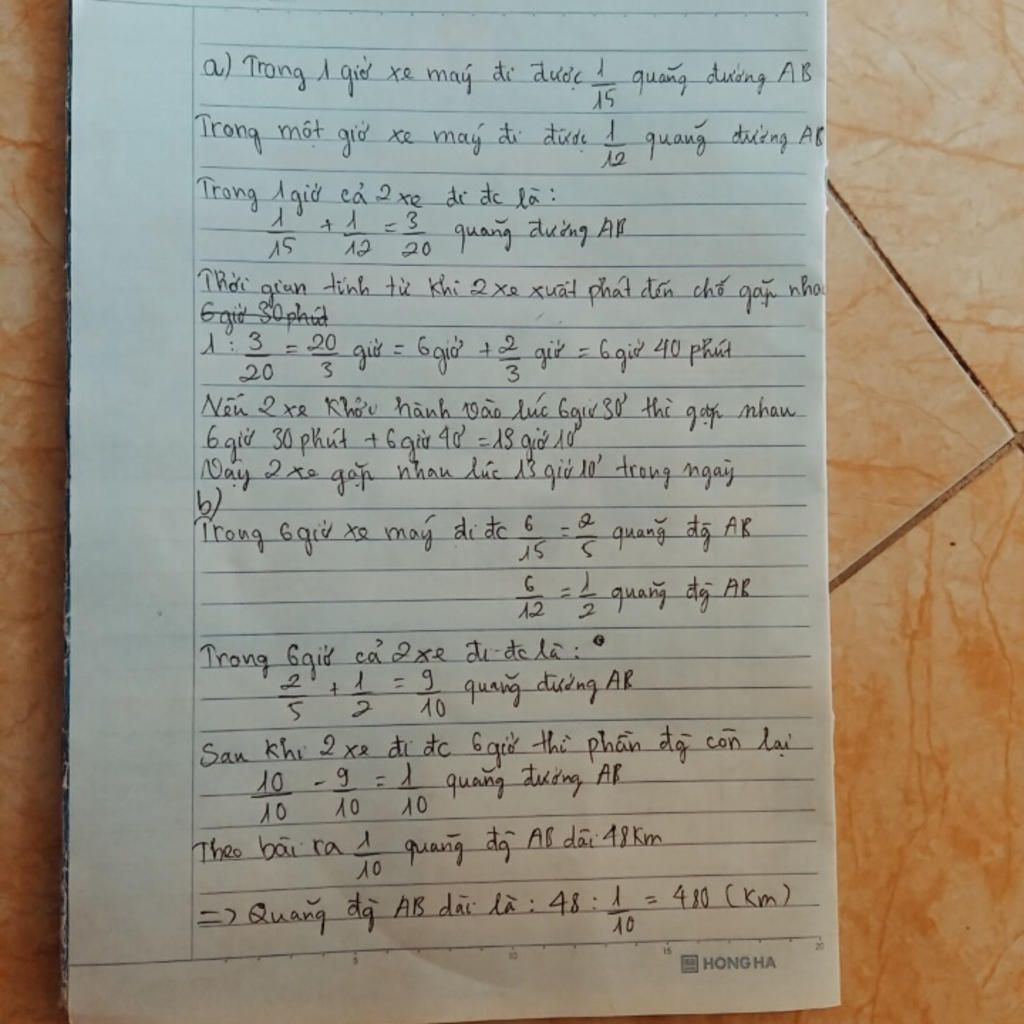 a) Trong 1 giờ xe máy đi được 1/15 quãng đường AB
Trong một giờ xe máy đi được 1/12 quãng đường AB
Trong 1 giờ cả 2 xe đi đc là:
1/15 + 1/12 = 3/20 quãng đường AB
Thời gian tính từ khi 2 xe xuất phát đến chỗ gặp nhau
6 giờ 30 phút
1 : 3/20 = 20/3 giờ = 6 giờ + 2/3 giờ = 6 giờ 40 phút
Nếu 2 xe khởi hành vào lúc 6 giờ 30' thì gặp nhau
6 giờ 30 phút + 6 giờ 40' = 13 giờ 10'
Vậy 2 xe gặp nhau lúc 13 giờ 10' trong ngày
b)
Trong 6 giờ xe máy đi đc 6/15 = 2/5 quãng đg AB
6/12 = 1/2 quãng đg AB
Trong 6 giờ cả 2 xe đi đc là:
2/5 + 1/2 = 9/10 quãng đường AB
Sau khi 2 xe đi đc 6 giờ thì phần đg còn lại
10/10 - 9/10 = 1/10 quãng đường AB
Theo bài ra 1/10 quãng đg AB dài 48 Km
=> Quãng đg AB dài là : 48 : 1/10 = 480 (Km)
5 10 15 20
HONG HA